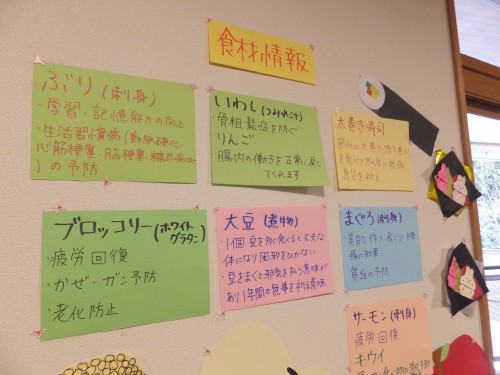 食材情報
ぶり(刺身)
・学習・記憶能力の向上
・生活習慣病(動脈硬化・
心筋梗塞・脳梗塞・糖尿病など)
の予防
いわし(つみれ汁)
骨粗鬆症を防ぐ
りんご
腸内の働きを正常に戻し
てくれます
太巻き寿司
節分に太巻き
を食べて
ブロッコリー(ホワイト
グラタン)
・疲労回復
・かぜ・ガン予防
・老化防止
大豆(煮物)
・1個豆を多く食べると丈夫な
体になり風邪をひかない
・豆をまくと邪気を払う意味が
あり1年間の無事を祈る意味
まぐろ(刺身)
美肌作り 肩こり・腰
痛に効果
貧血の予防
サーモン(刺身)
疲労回復
キウイ